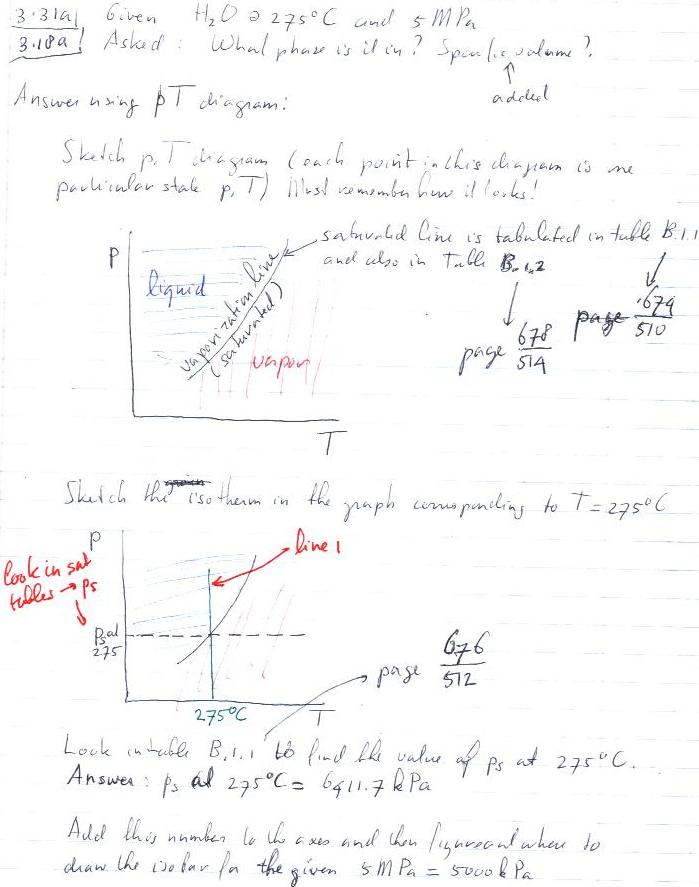 3.31a Given H2O @ 275°C and 5 MPa
3.18a! Asked: What phase is it in? Specific volume?
added
Answer using pT diagram:
Sketch p,T diagram (each point in this diagram is one
particular state p,T) Must remember how it looks!
saturated line is tabulated in table B.1.1
and also in Table B.1.2
P
liquid
vaporization line
(saturated)
vapor
T
page 678/514
page 674/510
Sketch the isotherm in the graph corresponding to T = 275°C
P
line 1
look in sat
tables → ps
Psat
275
275°C
T
page 676/512
Look in table B.1.1 to find the value of ps at 275°C.
Answer: ps at 275°C = 6411.7 kPa
Add this number to the axes and then figure out where to
draw the isobar for the given 5 MPa = 5000 kPa